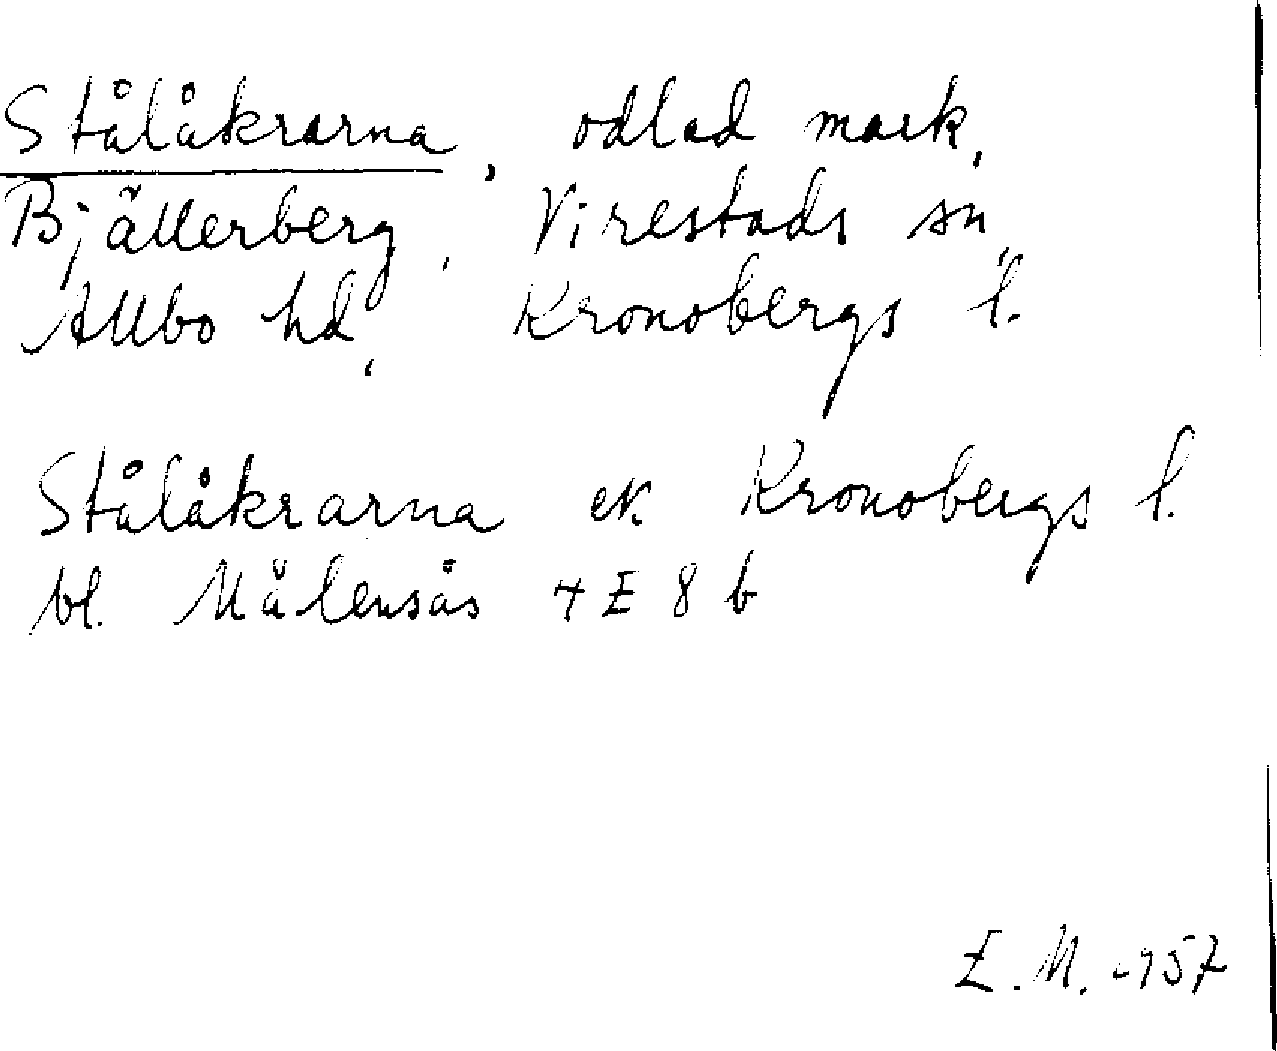 Stålåkrarna, odlad mark,
Bjällerberg, Virestads sn,
Allbo hd, Kronobergs l.
Stålåkrarna ek. Kronobergs l.
bl. Målensås 4 E 8 b
E. M. -957